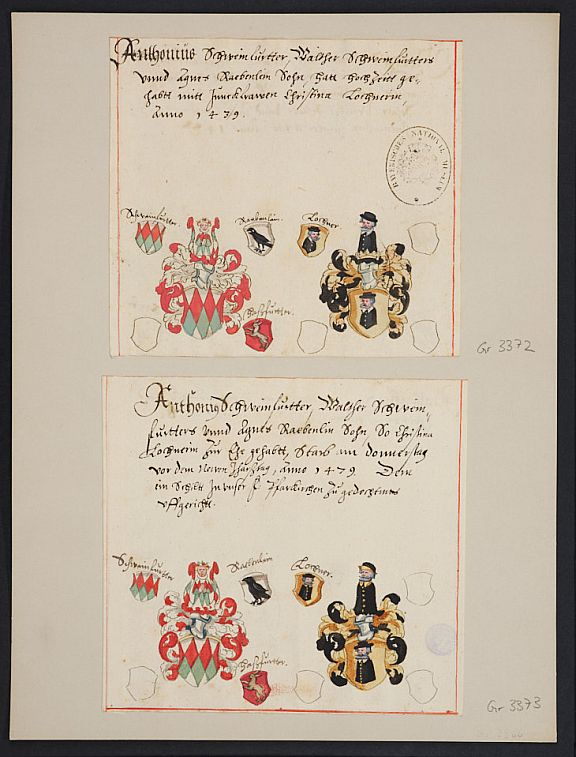 Anthonius Schweinfurtter, Walther Schweinfurtters
vnnd Agnes Raebenlin Sohn hatt hochzeitt ge-
habtt mitt Junckfrawen Christina Lochnerin
Anno 1439.
BAYERISCHES NATIONAL MUSEUM
Schweinfurtter.
Raebenlein.
Lochner
Hassfurtter.
Gr 3372
Anthonius Schweinfurtter, Walther Schwein-
furtters vnnd Agnes Raebenlin Sohn So Christina
Lochnerin zur Ehe gehabtt, Starb am Donnerstag
vor dem Newen Jharstag, Anno 1479. Dem
ein Schiltt In vnser Pfarrkirchen zu gedechtnus
vffgericht.
Schweinfurtter
Raebenlein
Lochner.
Hassfurtter.
Gr 3373